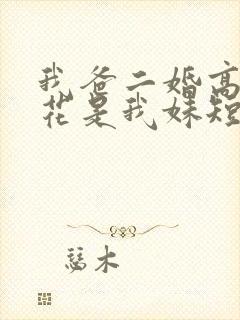 我爸二婚高
花是我妹短
慈木